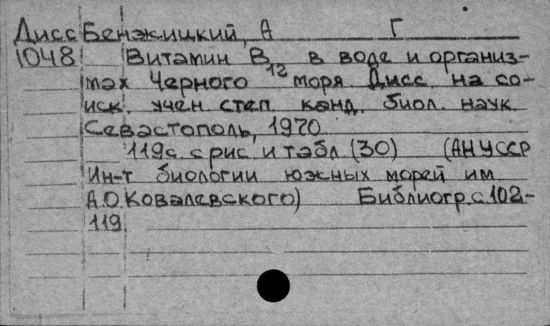 Дисс Бенжицкий, А Г
1048 Витамин B12 в воде и организ-
мах Черного моря. Дисс. на со-
иск. учен. степ. канд. биол. наук.
Севастополь, 1970
119с. с рис. и табл. (30) (АН УССР
Ин-т биологии южных морей им.
А.О.Ковалевского) Библиогр. с.102-
119.